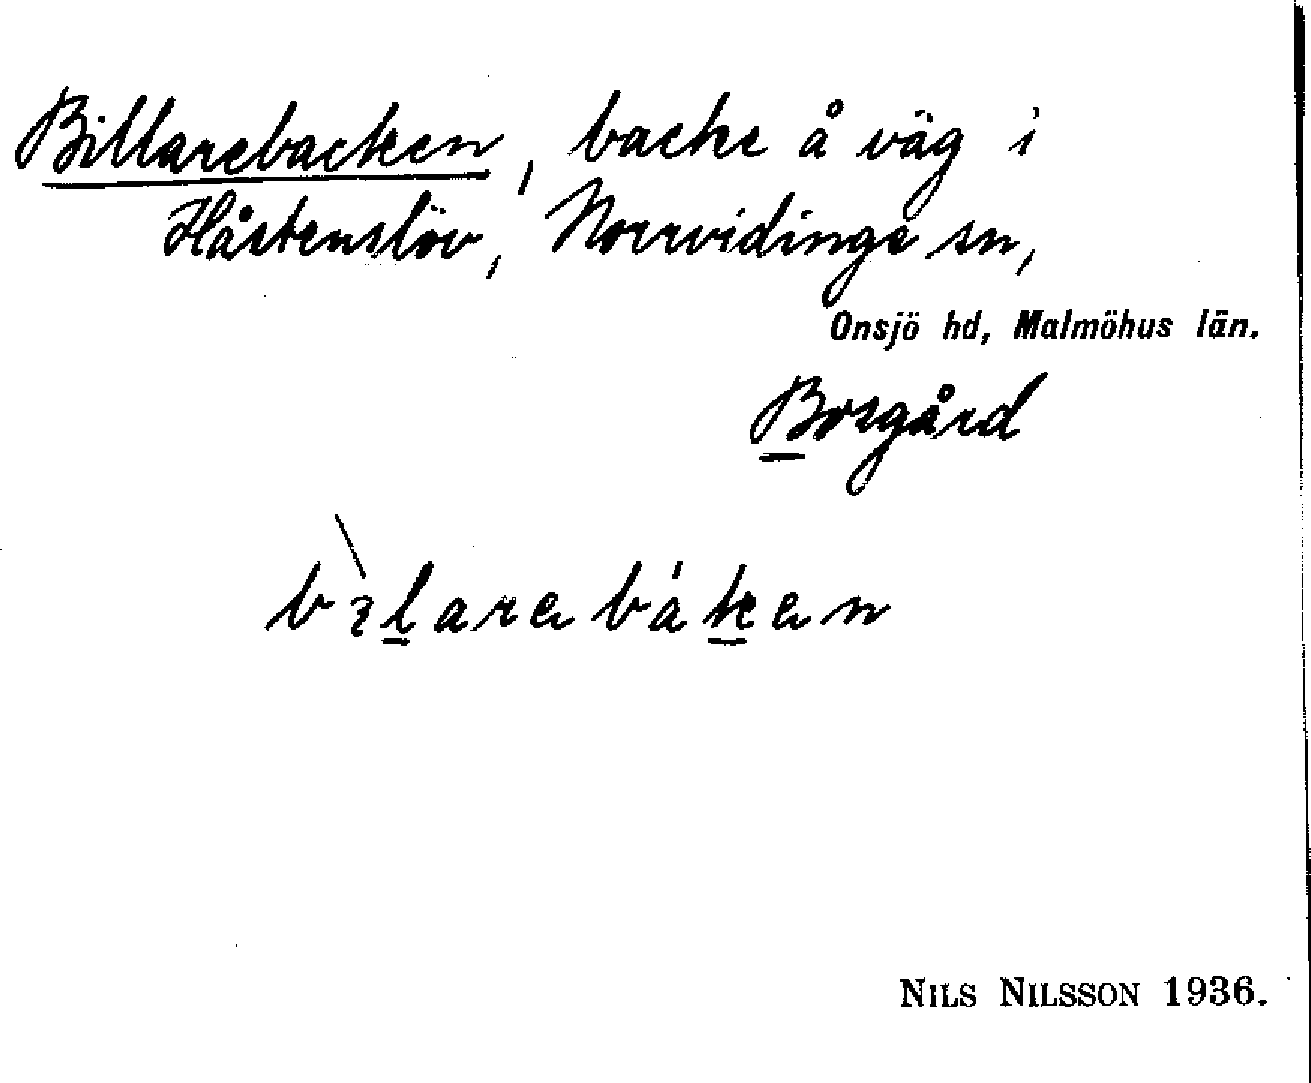 Billarebacken, backe å väg i
Håstenslöv, Norrvidinge sn,
Onsjö hd, Malmöhus län.
Borgård
NILS NILSSON 1936.